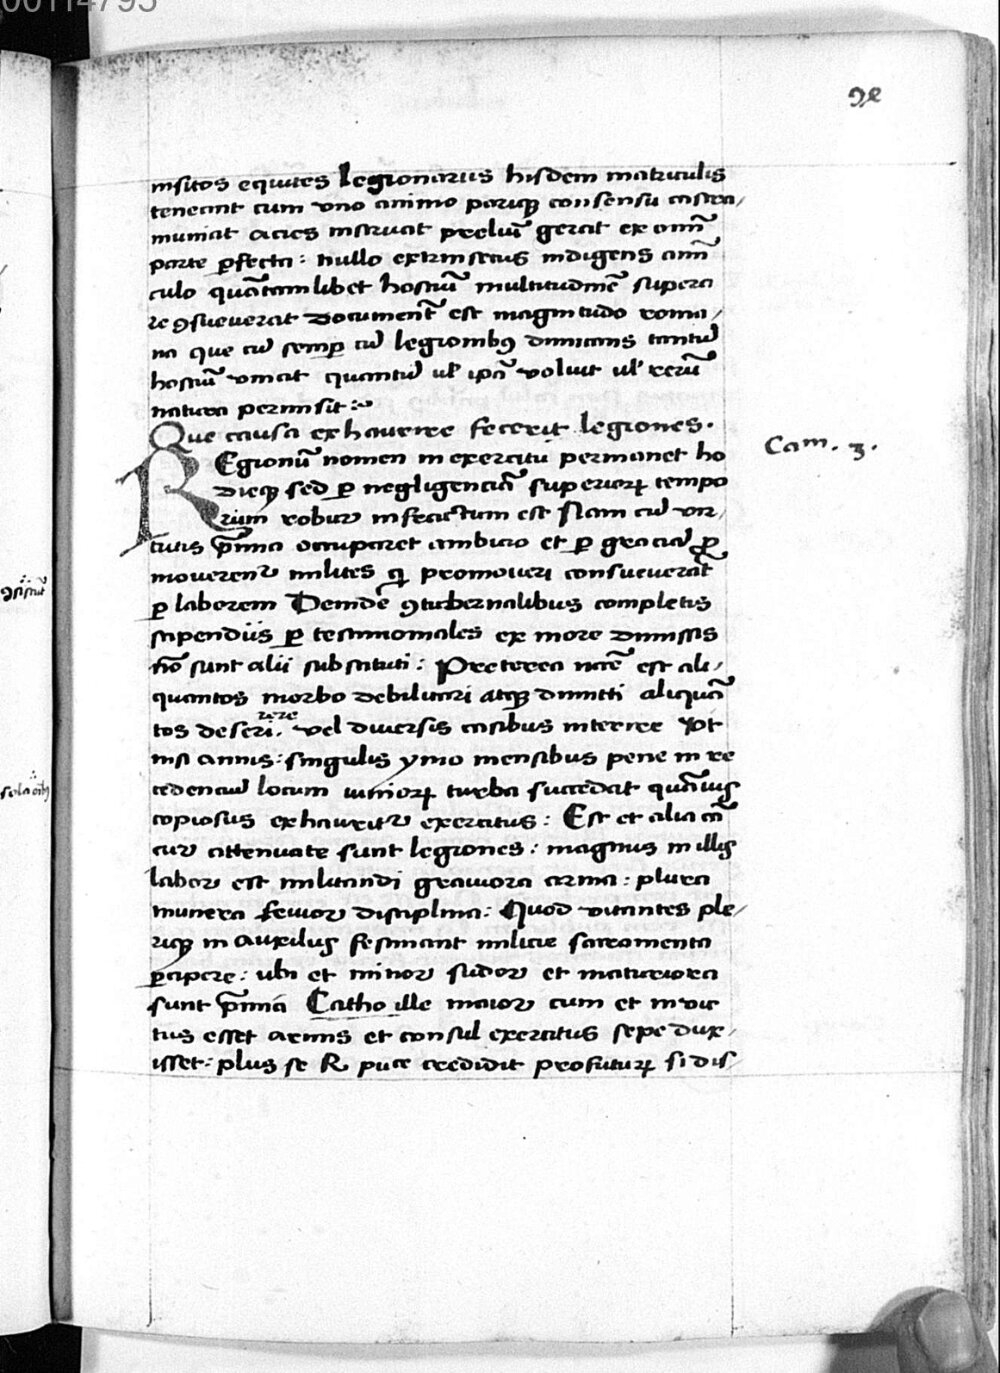 00114795
insitos equites legionarios hisdem matriculis
teneant cum vno animo pariqꝫ consensu castra/
muniat acies instruat preliũ gerat ex omĩ
parte ꝑfecta : nullo extrinsecus indigens amĩ
culo quãtamlibet hostiũ multitudinẽ supera
re ꝯsueuerat documentũ est magnitudo roma/
na que cũ semꝑ cũ legionibꝰ dimicans tantũ
hostiũ vincat quantũ uł ip̃a voluit uł rerũ
natura permisit :
Que causa exhaurire fecerit legiones .
Cam . 3 .
REgionũ nomen in exercitu permanet ho
dieqꝫ sed ꝑ negligenciã superioꝝ tempo
rum robur infractum est Nam cũ vir/
tutis p̃mia occuparet ambicio et ꝑ graciã ꝓ
mouerenť milites q̇ promoueri consueuerãt
ꝑ laborem Deindẽ ꝯtubernalibus completis
stipendiis ꝑ testimoniales ex more dimissis
nõ sunt alii substituti : Preterea ncẽ est ali/
quantos morbo debilitari atqꝫ dimitti aliquã
tos deseri . vel diuersis casibus interire
nisi annis : singulis ymo mensibus pene in re
cedenciũ locum iunioꝝ turba succedat quãuis
copiosus exhauritꝛ exercitus : Est et alia cã
cur attenuate sunt legiones : magnus in illis
labor est militandi grauiora arma : plura
munera seuior disciplina : Quod vitantes ple/
riqꝫ in auxiliis festinant milicie sacramenta
ꝑcipere : ubi et minor sudor et maturiora
sunt p̃mia Catho ille maior cum et inuic
tus esset armis et consul exercitus sepe dux/
isset : plus se R puce credidit profuturꝝ si dis/